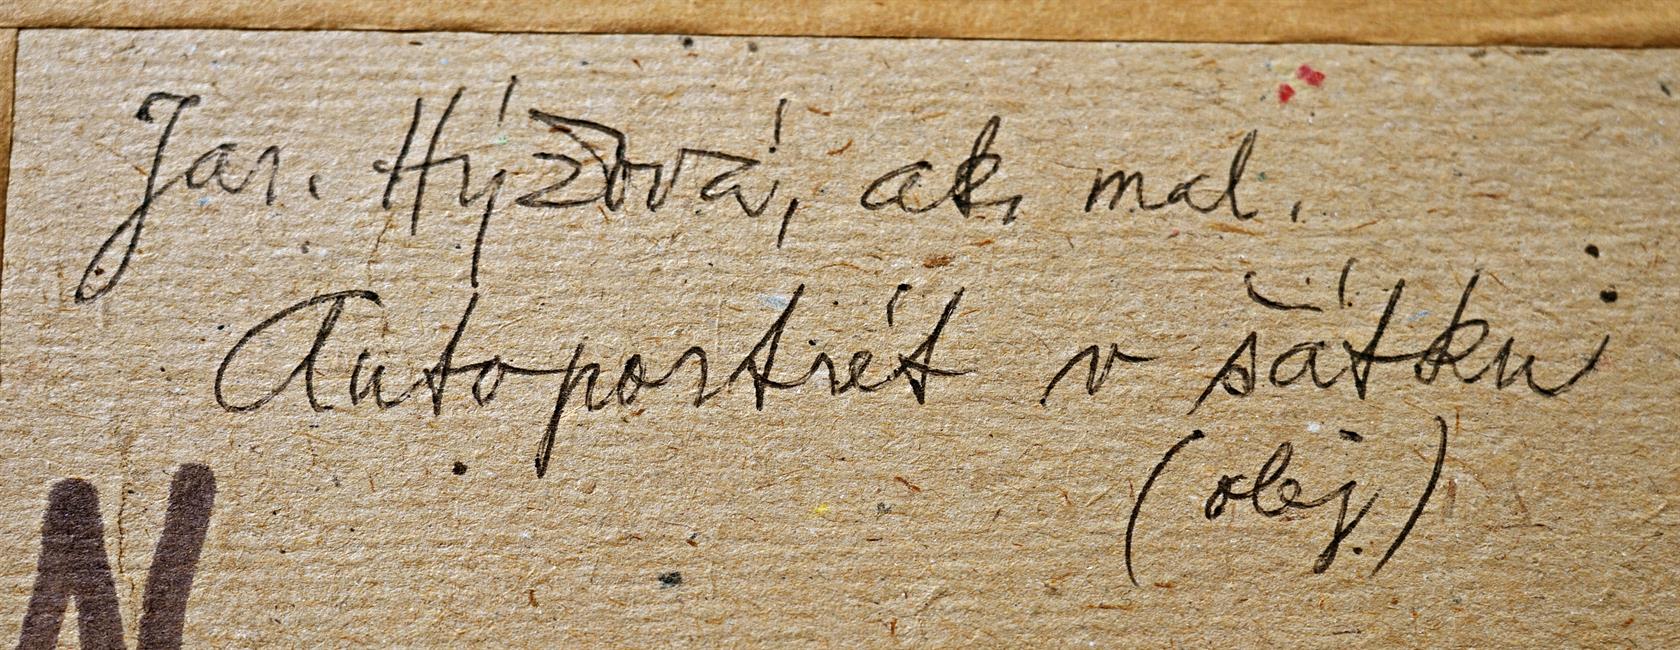 Jar. Hýžová, ak. mal.
Autoportrét v šátku
(olej)
N